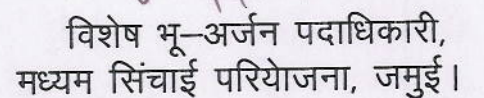 विशेष भू–अर्जन पदाधिकारी,
मध्यम सिंचाई परियोजना, जमुई।